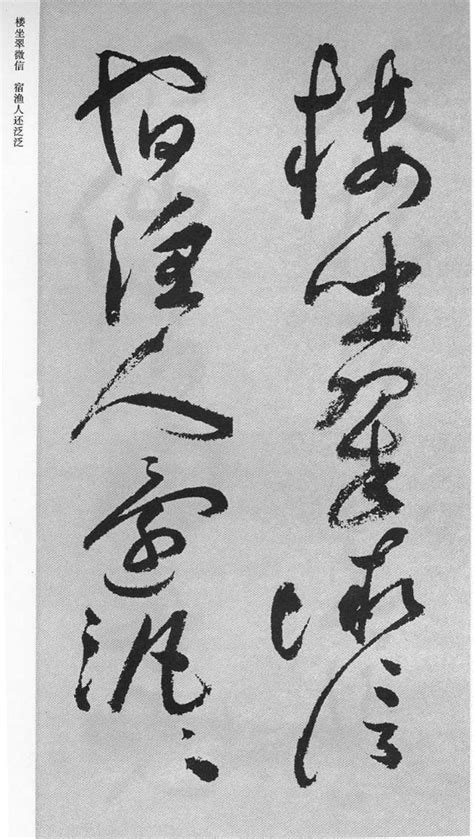 楼坐翠微信
宿渔人还泛〻
楼坐翠微信　宿渔人还泛泛